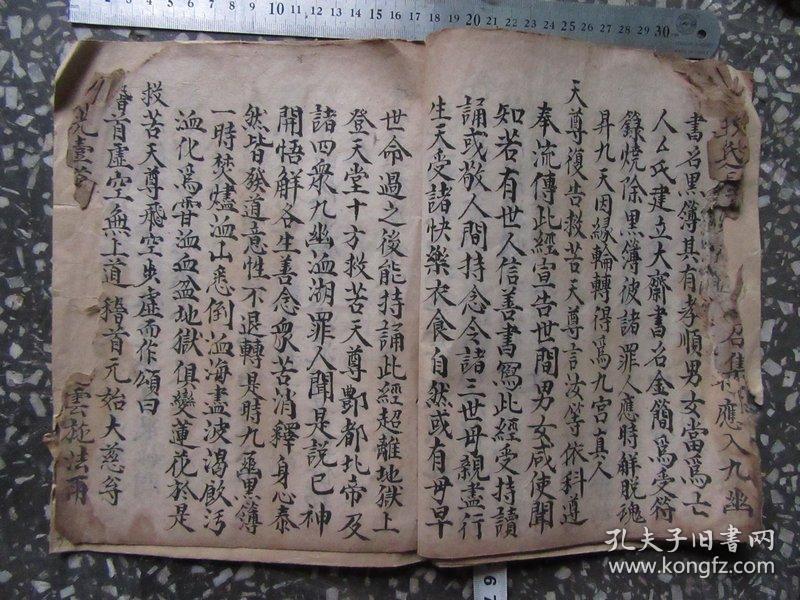 召集
應入九幽
書名黑簿其有孝順男女當為亡
人厶氏建立大齋書名金簡為受符
籙燒除黑簿彼諸罪人應時觧脱魂
昇九天因緣輪轉得為九宫真人
天尊復告救苦天尊言汝等依科遵
奉流傳此經宣告世間男女咸使聞
知若有世人信善書寫此經受持讀
誦或敬人間持念令諸三世母親盡行
生天受諸快樂衣食自然或有母早
世命過之後能持誦此經超離地獄上
登天堂十方救苦天尊酆都北帝及
諸四衆九幽血湖罪人聞是説已神
開悟觧各生善念衆苦消釋身心泰
然皆發道意性不退轉是時九巫黒簿
一時焚燼血山悉倒血海盡波渴飲汚
血化為霄血血盆地獄俱變蓮花於是
救苦天尊飛空步虚而作頌曰
首虚空無上道稽首元始大慈尊
雲施法雨
0 1 2 3 4 5 6 7 8 9 10 11 12 13 14 15 16 17 18 19 20 21 22 23 24 25 26 27 28 29 30
孔夫子旧书网
www.kongfz.com